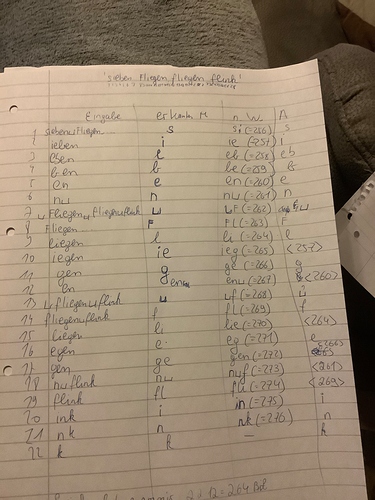 "sieben Fliegen fliegen flink"
Eingabe erkanntes M n W A
1 sieben␣Fliegen s si (=256) s
2 ieben i ie (=257) i
3 eben e eb (=258) eb
4 ben b be (=259) b
5 en e en (=260) e
6 n␣ n n␣ (=261) n
7 ␣Fliegen␣fliegen␣flink ␣ ␣F (=262) ␣
8 Fliegen F Fl (=263) F
9 liegen l li (=264) l
10 iegen ie ieg (=265) <257>
11 gen g ge (=266) g
12 en en␣ (=267) <260>
13 ␣fliegen␣flink ␣ ␣f (=268) ␣
14 fliegen␣flink f fl (=269) f
15 liegen li lie (=270) <264>
16 egen e eg (=271) e
17 gen ge gen (=272) <266>
18 n␣flink n␣ n␣f (=273) <261>
19 flink fl fli (=274) <269>
20 ink i in (=275) i
21 nk n nk (=276) n
22 k k - k
22·12 = 264 Bit